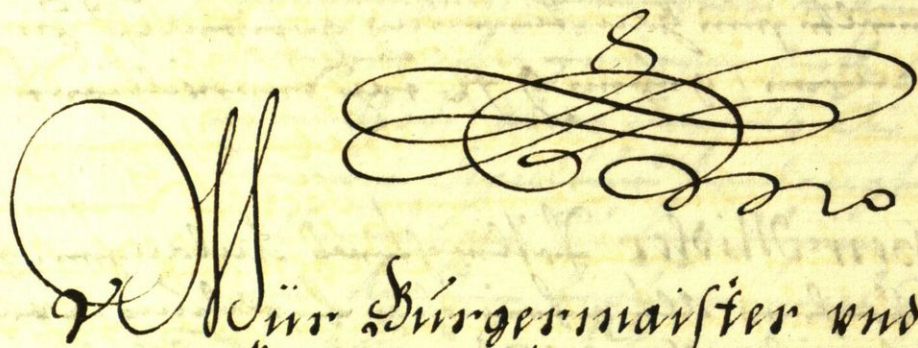 Wür Bürgermaister vnd